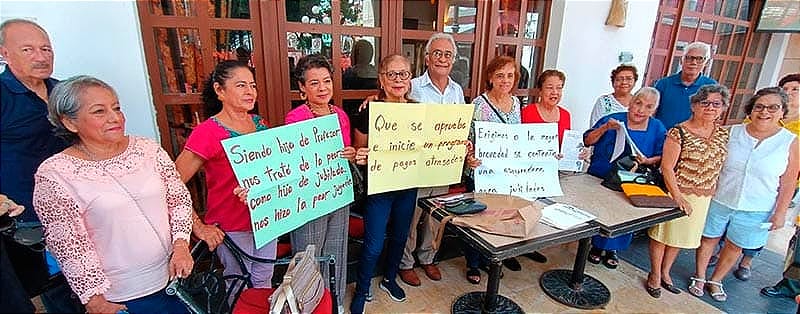 Siendo hijo de Profesor
nos trató de lo peor
como hijo de jubilado
nos hizo la peor
Que se apruebe
e inicie un programa
de pagos atrasados
Exigimos a la mayor
brevedad se contente
una
para jubilados